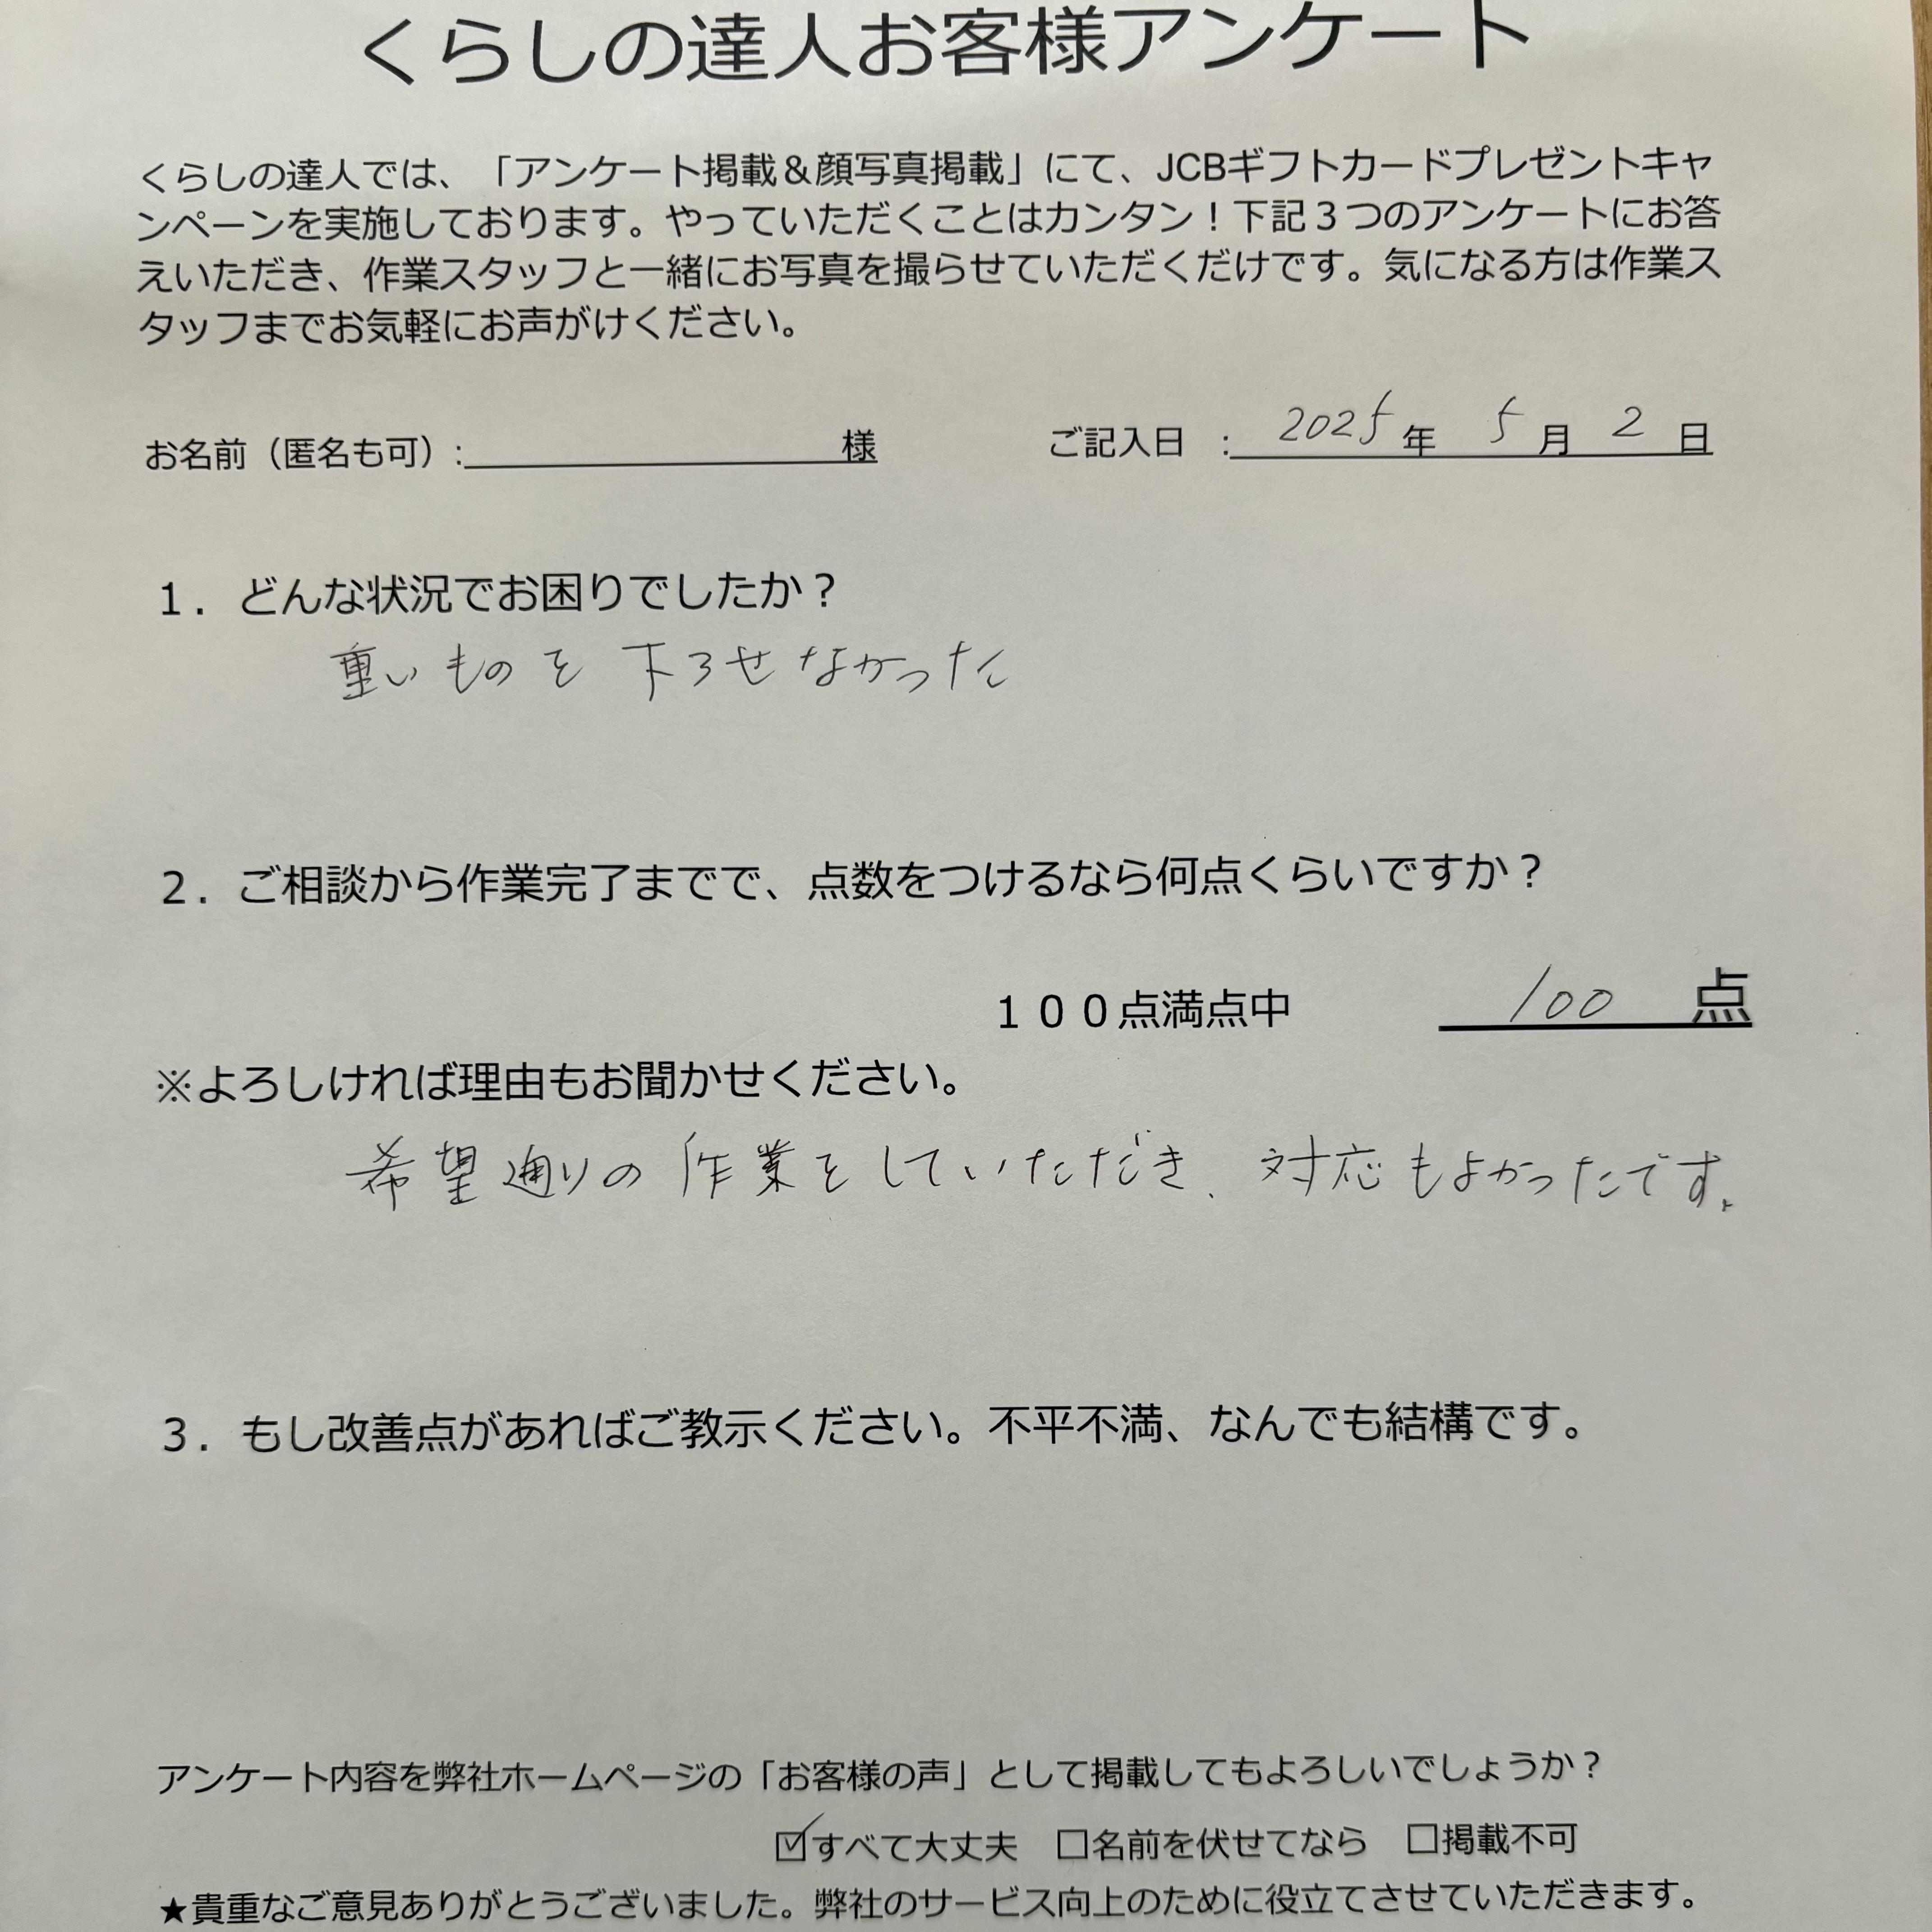 くらしの達人お客様アンケート
くらしの達人では、「アンケート掲載＆顔写真掲載」にて、JCBギフトカードプレゼントキャ
ンペーンを実施しております。やっていただくことはカンタン！下記３つのアンケートにお答
えいただき、作業スタッフと一緒にお写真を撮らせていただくだけです。気になる方は作業ス
タッフまでお気軽にお声がけください。
お名前（匿名も可）: 様 ご記入日 : 2025年 5月 2日
１．どんな状況でお困りでしたか？
重いものを下ろせなかった
２．ご相談から作業完了までで、点数をつけるなら何点くらいですか？
１００点満点中 100 点
※よろしければ理由もお聞かせください。
希望通りの作業をしていただき、対応もよかったです。
３．もし改善点があればご教示ください。不平不満、なんでも結構です。
アンケート内容を弊社ホームページの「お客様の声」として掲載してもよろしいでしょうか？
☑すべて大丈夫 □名前を伏せてなら □掲載不可
★貴重なご意見ありがとうございました。弊社のサービス向上のために役立てさせていただきます。